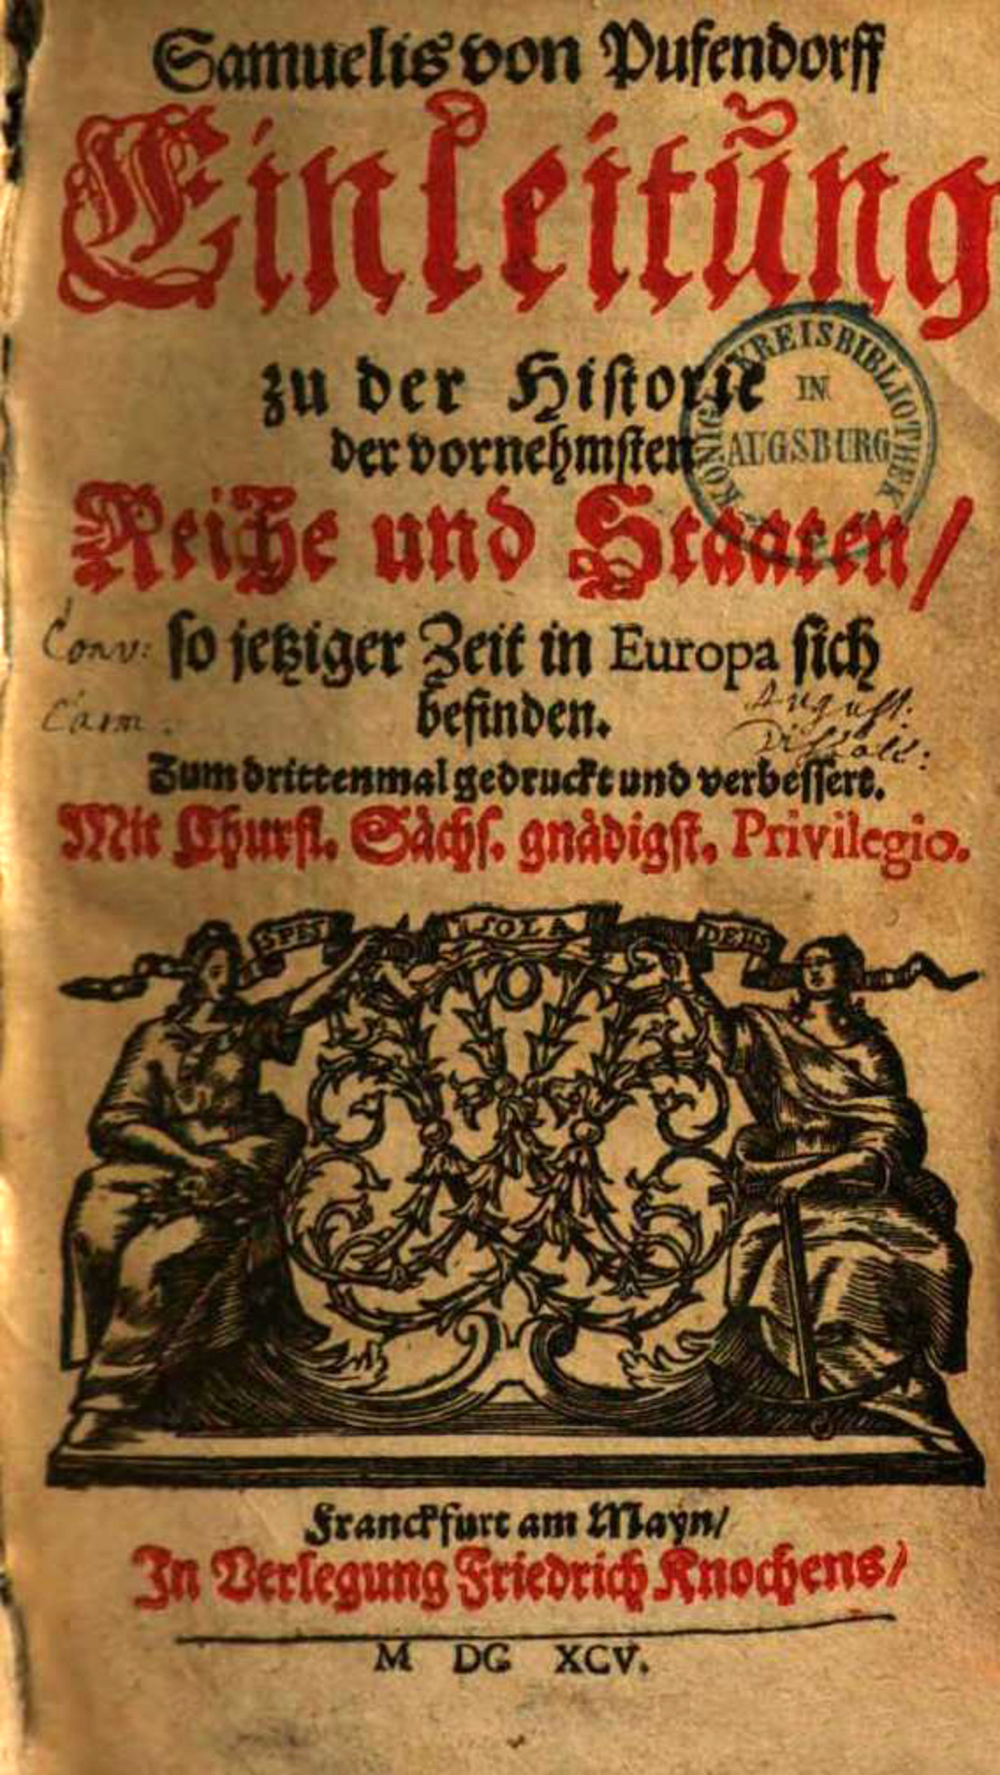 Samuelis von Pufendorff
Einleitung
zu der Historie
der vornehmsten
Reiche und Staaten/
so jetziger Zeit in Europa sich
befinden.
Zum drittenmal gedruckt und verbessert.
Mit Churfl. Sächs. gnädigst. Privilegio.
KÖNIGL. KREISBIBLIOTHEK
IN
AUGSBURG
Conv:
Carm.
August:
Discalc:
SPES SOLA DEUS
Franckfurt am Mayn/
In Verlegung Friedrich Knochens/
M DC XCV.